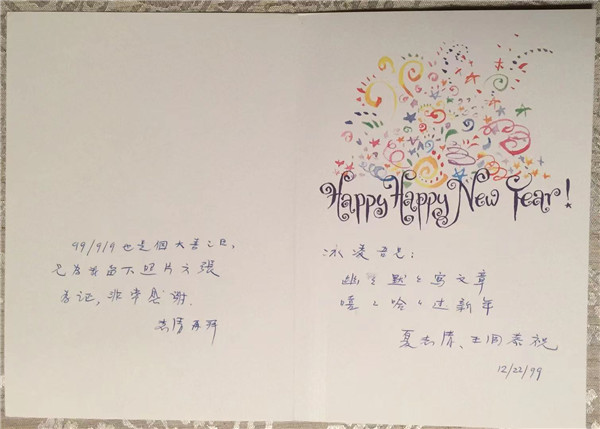 99/9/9 也是個大喜之日,
已为我留下照片六張
为证, 非常感謝.
志清再拜
Happy Happy New Year!
冰凌吾兄:
幽々默々写文章
嘻々哈々过新年
夏志清、王洞恭祝
12/22/99